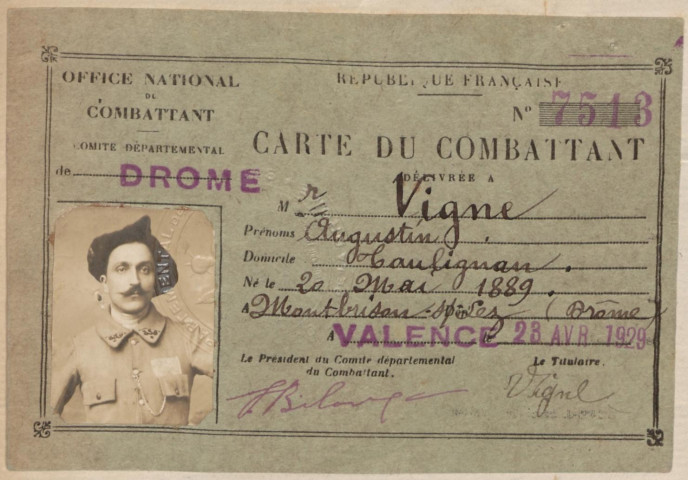 OFFICE NATIONAL
DU
COMBATTANT
COMITE DÉPARTEMENTAL
de DROME
RÉPUBLIQUE FRANÇAISE
N° 7513
CARTE DU COMBATTANT
DÉLIVRÉE A
Mr Vigne
Prénoms Augustin
Domicile Taulignan
Né le 20 Mai 1889
A Montbrison-s/Lez (Drôme)
A VALENCE 23 AVR 1929
Le Président du Comité départemental
du Combattant.
Le Titulaire.
Vigne